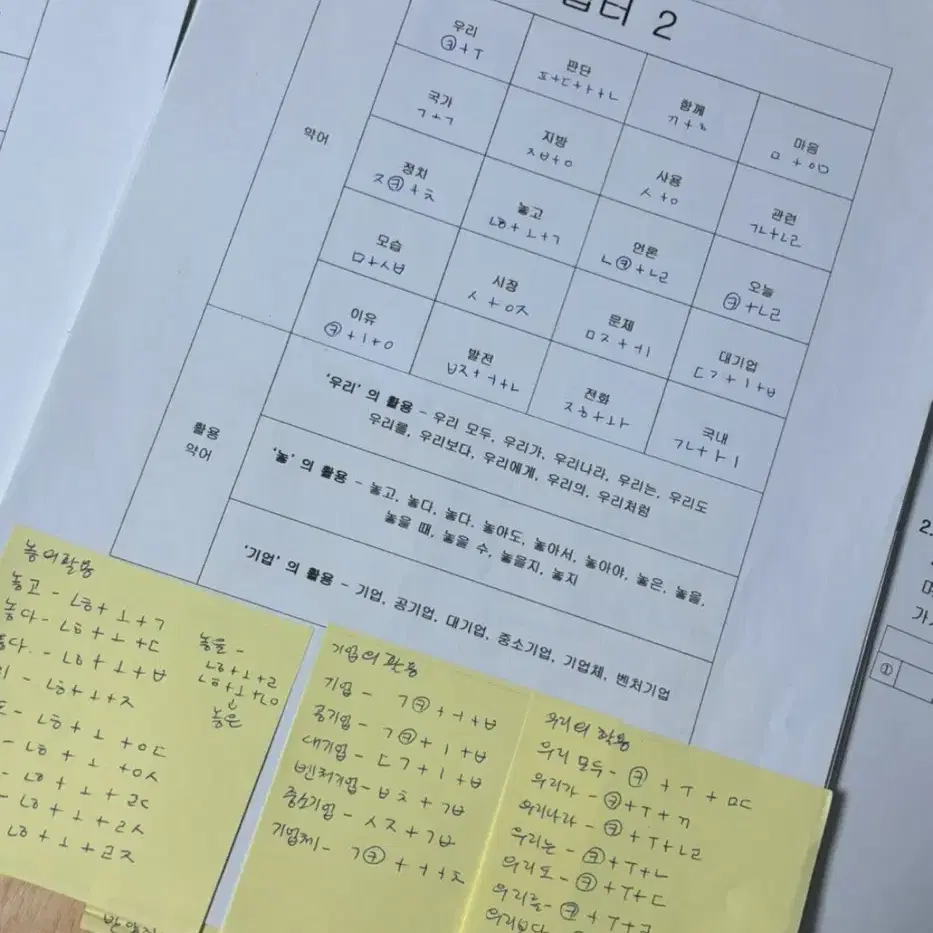 챕터 2
약어
우리 판단 함께 마음
㋪+ㅜ ㅍ+ㄷ+ㅏ+ㄴ ㄲ+ㅎ ㅁ+ㅇㅁ
국가 지방 사용 관련
ㄱ+ㄱ ㅈㅂ+ㅇ ㅅ+ㅇ ㄱㄴ+ㄴㄹ
정치 놓고 언론 오늘
ㅈ㋪+ㅊ ㄴㅎ+ㅗ+ㄱ ㄴ㋪+ㄴㄹ ㋪+ㄴㄹ
모습 시장 문제 대기업
ㅁ+ㅅㅂ ㅅ+ㅇㅈ ㅁㅈ+ㅓㅣ ㄷㄱ+ㅣ+ㅂ
이유 발전 전화 국내
㋪+ㅣ+ㅇ ㅂㅈ+ㅓ+ㄴ ㅈㅎ+ㅗㅏ ㄱㄴ+ㅏㅣ
활용
약어
'우리' 의 활용 - 우리 모두, 우리가, 우리나라, 우리는, 우리도
우리를, 우리보다, 우리에게, 우리의, 우리처럼
'놓' 의 활용 - 놓고, 놓다, 놓다. 놓아도, 놓아서, 놓아야, 놓은, 놓을,
놓을 때, 놓을 수, 놓을지, 놓지
'기업' 의 활용 - 기업, 공기업, 대기업, 중소기업, 기업체, 벤처기업
놓의 활용
놓고 - ㄴㅎ+ㅗ+ㄱ
놓다 - ㄴㅎ+ㅗ+ㄷ
다. - ㄴㅎ+ㅗ+ㅂ
- ㄴㅎ+ㅗ+ㅈ
- ㄴㅎ+ㅗ+ㅇㄷ
- ㄴㅎ+ㅗ+ㅇㅅ
- ㄴㅎ+ㅗ+ㄹㄷ
- ㄴㅎ+ㅗ+ㄹㅅ
ㄴㅎ+ㅗ+ㄹㅈ
놓을 -
ㄴㅎ+ㅗ+ㄹ
ㄴㅎ+ㅗ+ㄴㅇ
놓은
기업의 활용
기업 - ㄱ㋪+ㅓ+ㅂ
공기업 - ㄱ㋪+ㅣ+ㅂ
대기업 - ㄷㄱ+ㅣ+ㅂ
벤처기업 - ㅂㅊ+ㄱㅂ
중소기업 - ㅅㅈ+ㄱㅂ
기업체 - ㄱ㋪+ㅓ+ㅊ
우리의 활용
우리 모두 - ㋪+ㅜ+ㅁㄷ
우리가 - ㋪+ㅜ+ㄲ
우리나라 - ㋪+ㅜ+ㄴㄹ
우리는 - ㋪+ㅜ+ㄴ
우리도 - ㋪+ㅜ+ㄷ
우리를 - ㋪+ㅜ+ㄹ
우리보다
2.
①